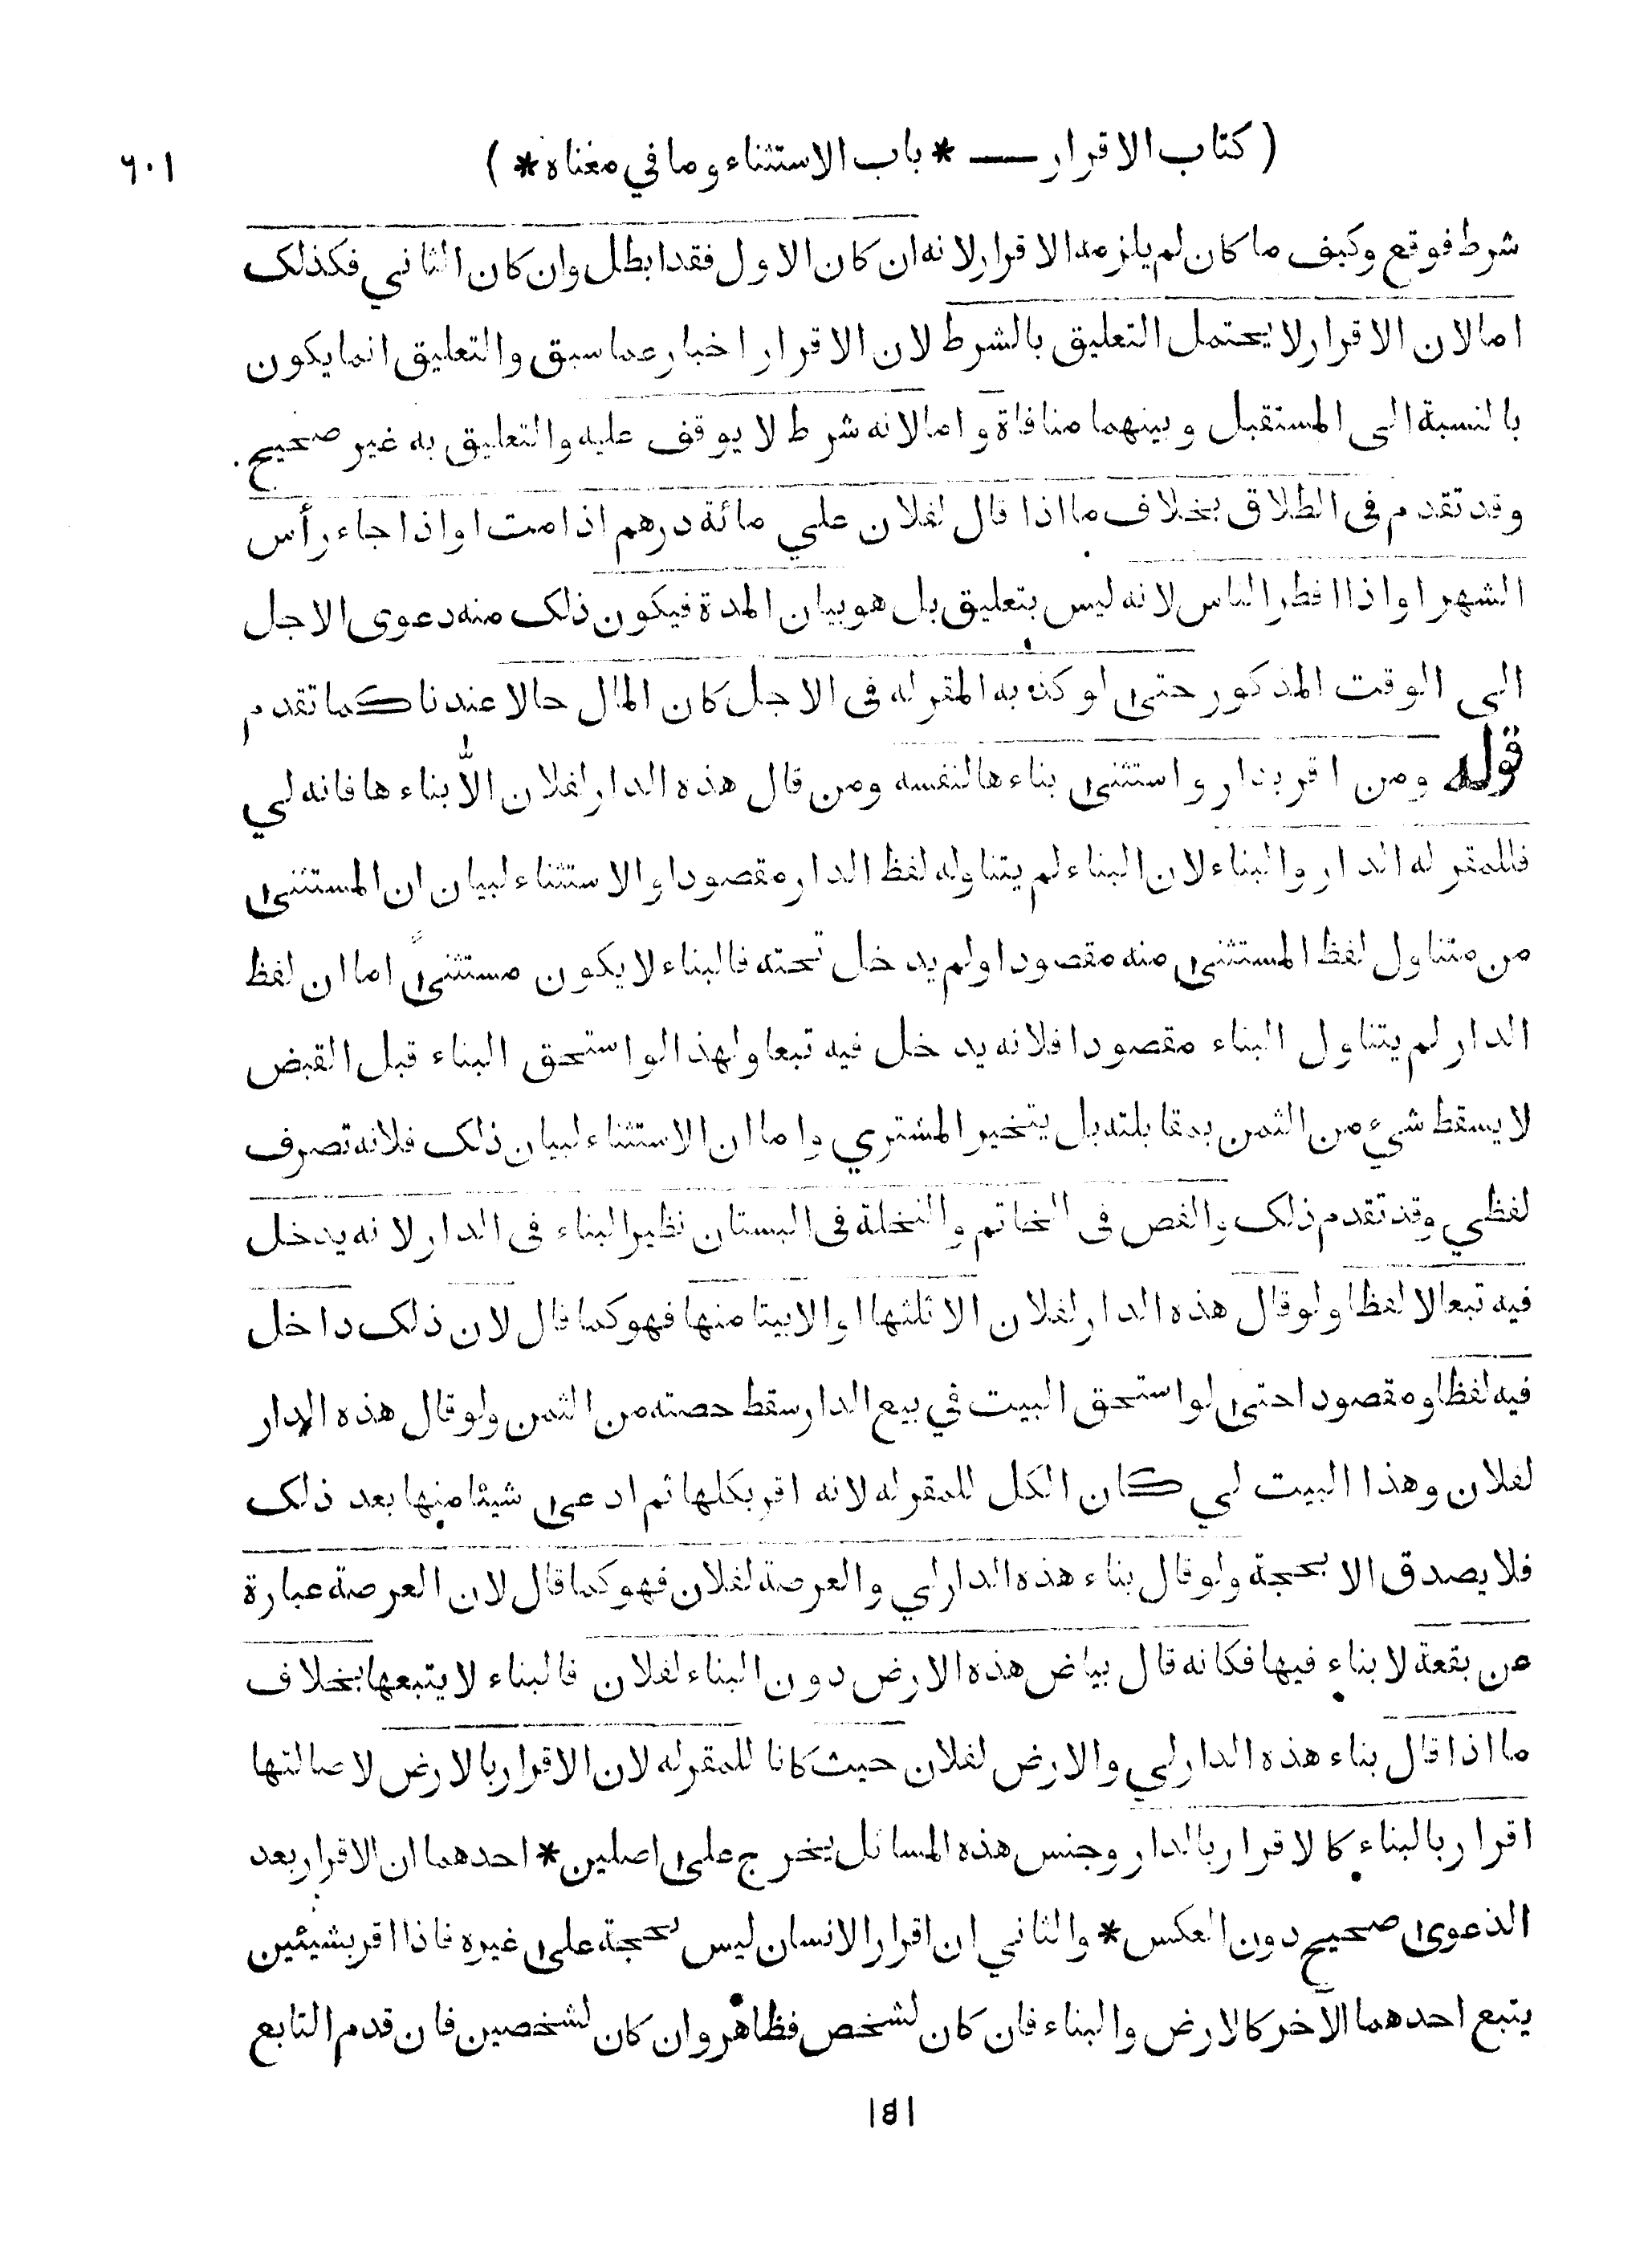 ( كتاب الاقرار — * باب الاستثناء وما في معناه * ) ٦٠١
شرط فوقع وكيف ما كان لم يلزمه الاقرار لانه ان كان الاول فقد ابطل وان كان الثاني فكذلك
اما لان الاقرار لا يحتمل التعليق بالشرط لان الاقرار اخبار عما سبق والتعليق انما يكون
بالنسبة الى المستقبل وبينهما منافاة و اما لانه شرط لا يوقف عليه والتعليق به غير صحيح .
وقد تقدم في الطلاق بخلاف ما اذا قال لفلان علي مائة درهم اذا مت او اذا جاء رأس
الشهر او اذا افطر الناس لانه ليس بتعليق بل هو بيان المدة فيكون ذلك منه دعوى الاجل
الى الوقت المذكور حتى لو كذبه المقر له في الاجل كان المال حالا عندنا كما تقدم
قوله ومن اقر بدار واستثنى بناءها لنفسه ومن قال هذه الدار لفلان الّا بناءها فانه لي
فللمقر له الدار والبناء لان البناء لم يتناوله لفظ الدار مقصودا والاستثناء لبيان ان المستثنى
من متناول لفظ المستثنى منه مقصودا ولم يدخل تحته فالبناء لا يكون مستثنىً اما ان لفظ
الدار لم يتناول البناء مقصودا فلانه يدخل فيه تبعا ولهذا لو استحق البناء قبل القبض
لا يسقط شيء من الثمن بمقابلته بل يتخير المشتري واما ان الاستثناء لبيان ذلك فلانه تصرف
لفظي وقد تقدم ذلك والفص في الخاتم والنخلة في البستان نظير البناء في الدار لانه يدخل
فيه تبعا لا لفظا ولو قال هذه الدار لفلان الا ثلثها او الا بيتا منها فهو كما قال لان ذلك داخل
فيه لفظا ومقصودا حتى لو استحق البيت في بيع الدار سقط حصته من الثمن ولو قال هذه الدار
لفلان وهذا البيت لي كان الكل للمقر له لانه اقر بكلها ثم ادعى شيئا منها بعد ذلك
فلا يصدق الا بحجة ولو قال بناء هذه الدار لي والعرصة لفلان فهو كما قال لان العرصة عبارة
عن بقعة لا بناء فيها فكانه قال بياض هذه الارض دون البناء لفلان فالبناء لا يتبعها بخلاف
ما اذا قال بناء هذه الدار لي والارض لفلان حيث كانا للمقر له لان الاقرار بالارض لاصالتها
اقرار بالبناء كالاقرار بالدار وجنس هذه المسائل يخرج على اصلين * احدهما ان الاقرار بعد
الدعوى صحيح دون العكس * والثاني ان اقرار الانسان ليس بحجة على غيره فاذا اقر بشيئين
يتبع احدهما الآخر كالارض والبناء فان كان لشخص فظاهر وان كان لشخصين فان قدم التابع